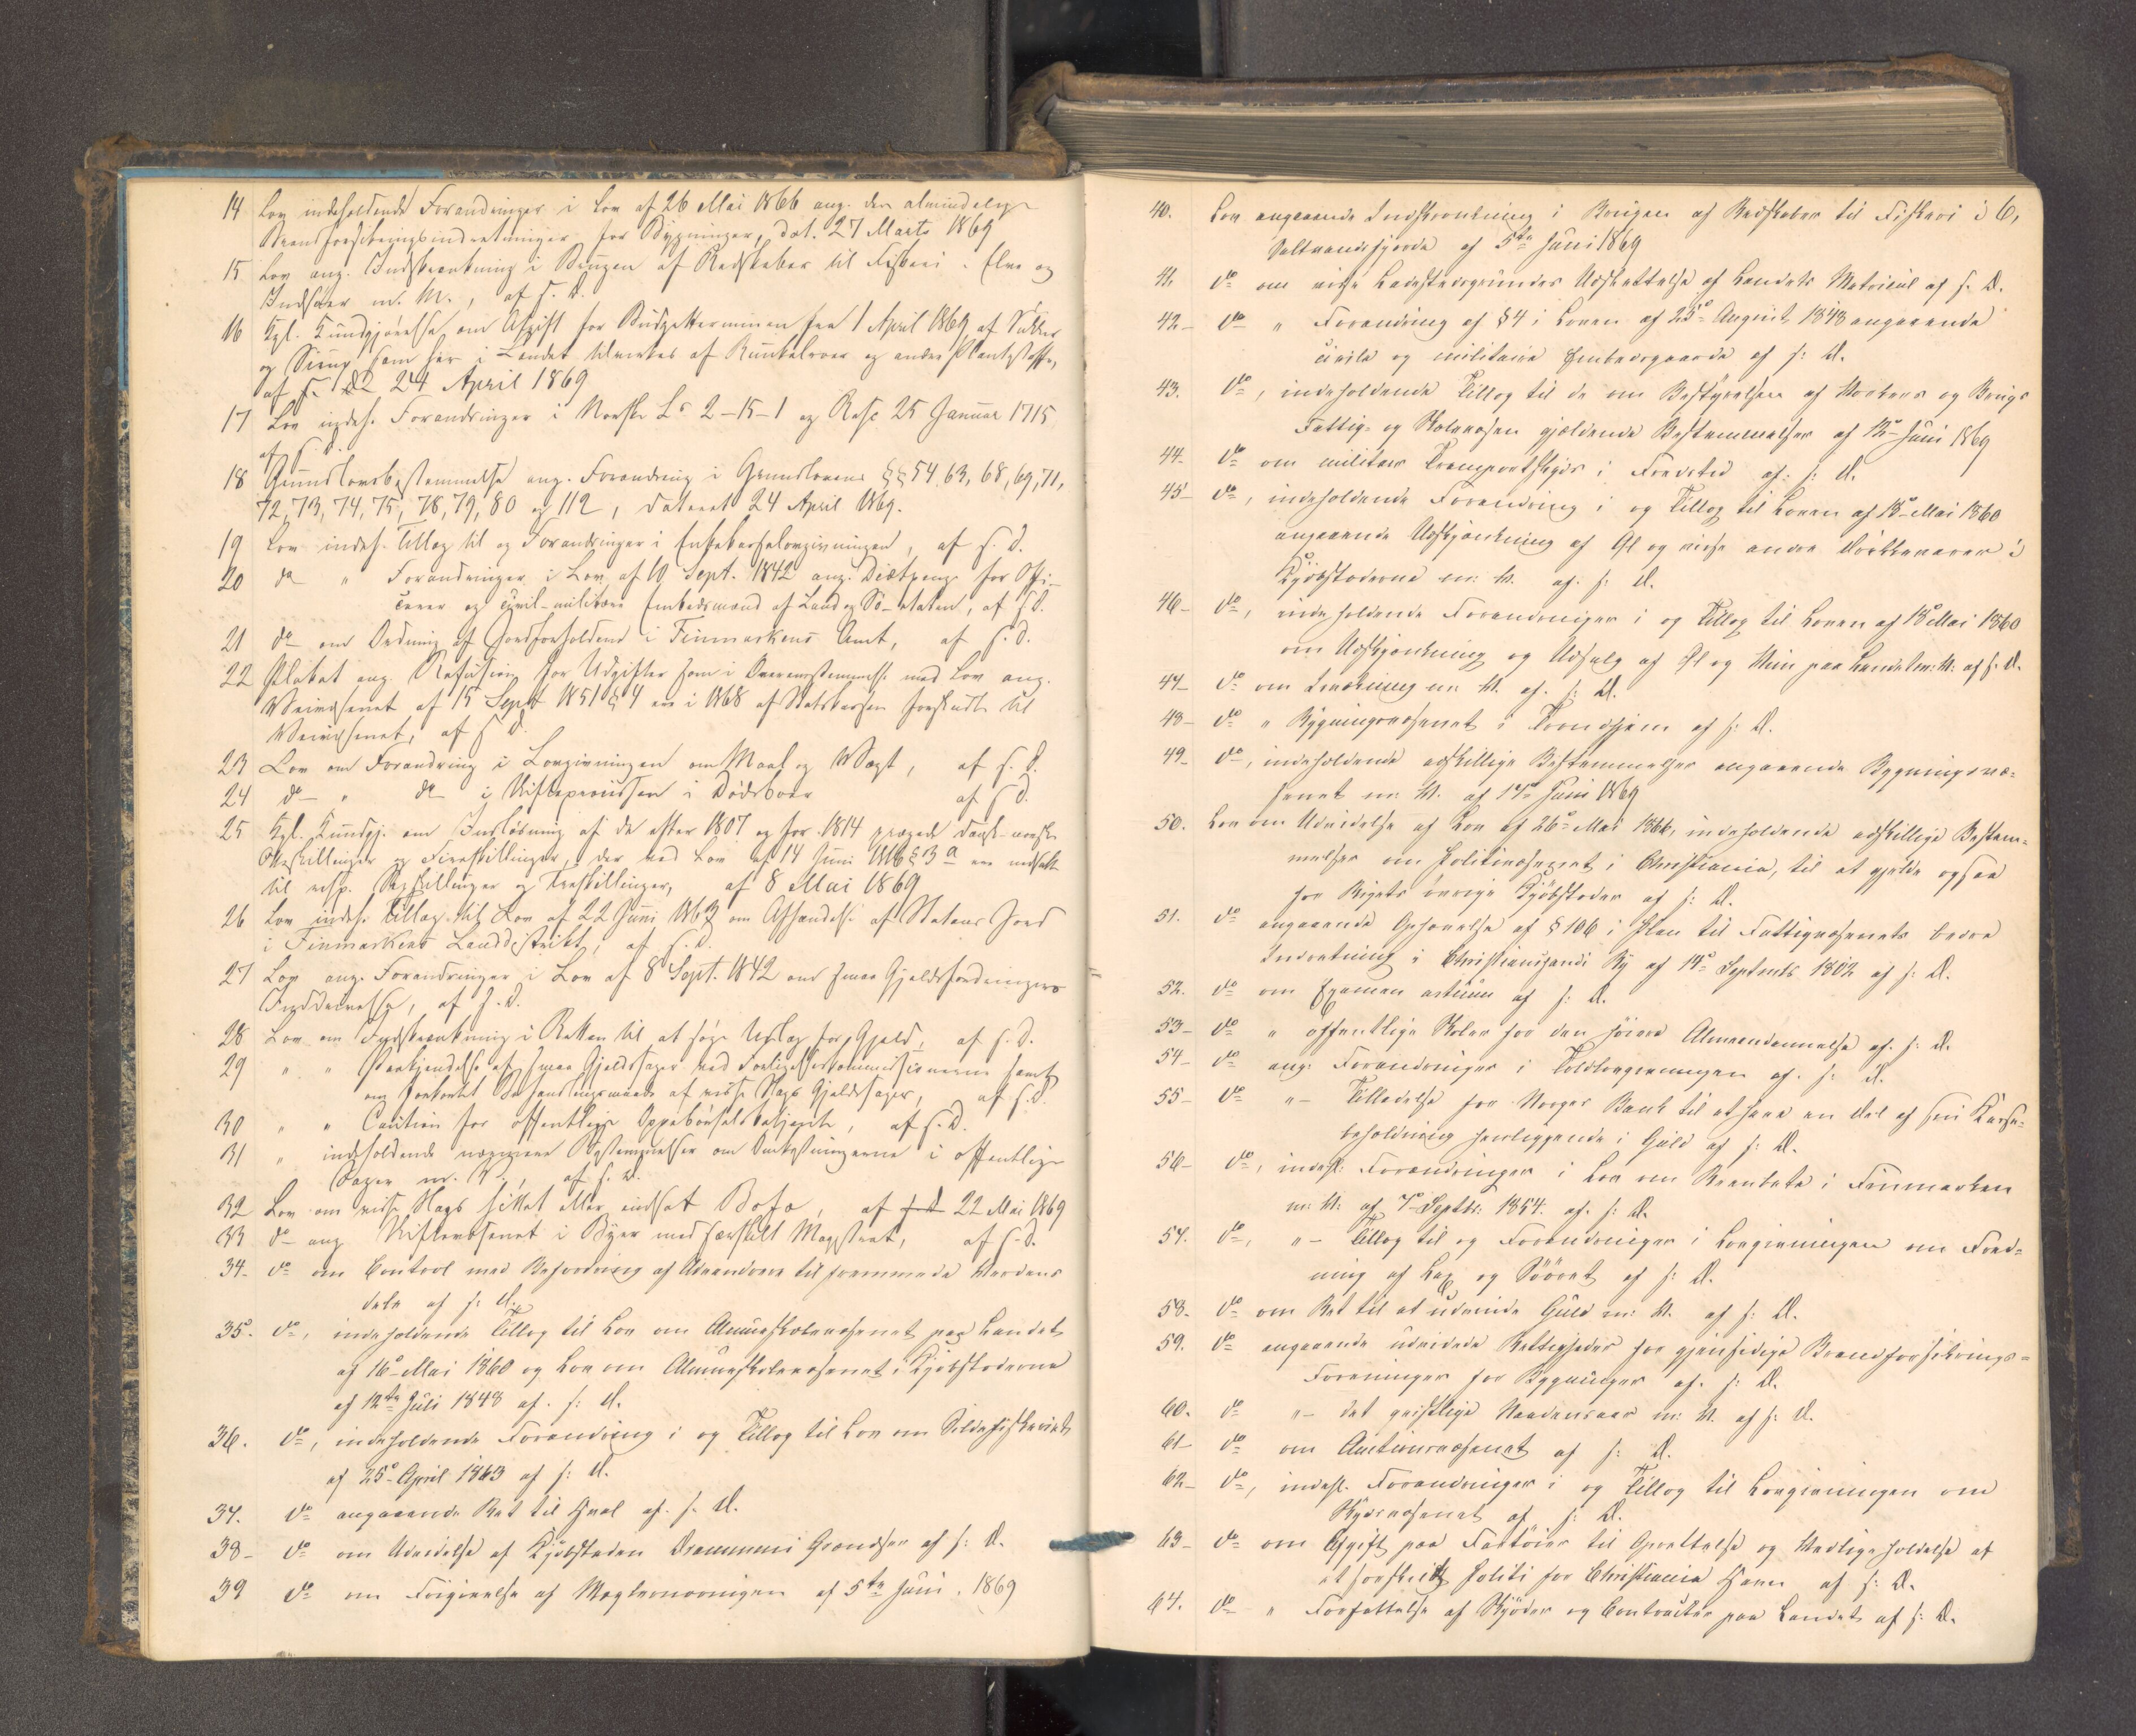 14 Lov indeholdende Forandringer i Lov af 26 Mai 1866 ang. den almindelige
Brandforsikringsindretninger for Bygninger, dat. 27 Marts 1869
15 Lov ang. Indskrænkning i Brugen af Redskaber til Fiskeri i Elve og
Indsøer m. M., af s. D.
16 Kgl. Kundgjørelse om Afgift for Budgetterminen fra 1 April 1869 af Sukker
og Sirup som her i Landet tilvirkes af Runkelroer og andre Plantestoffe,
af 24 April 1869
17 Lov indeh. Forandringer i Norske Ls 2-15-1 og Resc 25 Januar 1715
af s. D.
18 Grundlovsbestemmelse ang. Forandring i Grundlovens §§ 54, 63, 68, 69, 71,
72, 73, 74, 75, 78, 79, 80 og 112, dateret 24 April 1869.
19 Lov indeh. Tillæg til og Forandringer i Enkekasselovgivningen, af s. D.
20 do " Forandringer i Lov af 10 Sept. 1842 ang. Diætpenge for Offi-
cerer og civil-militære Embedsmænd af Land og Sö-etaten, af s. D.
21 do om Ordning af Jordforholdene i Finmarkens Amt, af s. D.
22 Plakat ang. Refusion for Udgifter som i Overensstemmelse med Lov ang.
Veivæsenet af 15 Sept 1851 § 4 ere i 1868 af Statskassen forskudte til
Veivæsenet, af s. D.
23 Lov om Forandring i Lovgivningen om Maal og Vægt, af s. D.
24 do " do i Skifteprocessen i Dødsboer af s. D.
25 Kgl. Kundgj. om Indløsning af de efter 1807 og før 1814 prægede dansk-norske
Otteskillinger og Fireskillinger, der ved Lov af 14 Juni 1816 § 3 a ere nedsatte
til resp. Sexskillinger og Treskillinger, af 8 Mai 1869
26 Lov indeh. Tillæg til Lov af 22 Juni 1863 om Afhændelse af Statens Jord
i Finmarkens Landdistrikt, af s. D.
27 Lov ang. Forandringer i Lov af 8 Sept. 1842 om smaa Gjeldsfordringers
Inddrivelse, af s. D.
28 Lov om Indskrænkning i Retten til at søge Udlæg for Gjeld, af s. D.
29 " " Paakjendelse af smaa Gjeldssager ved Forligelseskommissionerne samt
om forkortet Behandlingsmaade af visse Slags Gjeldssager, af s. D.
30 " " Caution for offentlige Oppebørselsbetjente, af s. D.
31 " indeholdende nærmere Bestemmelser om Omkostningerne i offentlige
Sager m. V., af s. D.
32 Lov om visse Slags hittet eller indsat Bofæ, af s. D. 22 Mai 1869
33 do ang. Skiftevæsenet i Byer med særskilt Magistrat, af s. D.
34- do om Control med Befordring af Udvandrere til fremmede Verdens
dele af s: D.
35. do, indeholdende Tillæg til Lov om Almueskolevæsenet paa Landet
af 16de Mai 1860 og Lov om Almueskolevæsenet i Kjøbstæderne
af 12te Juli 1848 af. s: D.
36. do, indeholdende Forandring i og Tillæg til Lov om Sildefiskeriet
af 25de April 1863 af s: D.
37. do angaaende Ret til Hval af. s. D.
38- do om Udvidelse af Kjøbstaden Drammens Grændser af s: D.
39 do om Frigivelse af Mæglernæringen af 5te Juni. 1869
40. Lov angaaende Indskrænkning i Brugen af Redskaber til Fiskeri i
Saltvandsfjorde af 5te Juni 1869
41. do om visse Ladestedsgrundes Udskettelse af Landets Matricul af s. D.
42- do " Forandring af § 4 i Loven af 25de August 1848 angaaende
civile og militaire Embedsgaarde af s: D.
43. do, indeholdende Tillæg til de om Bestyrelsen af Værkers og Brugs
Fattig- og Skolevæsen gjældende Bestemmelser af 12te Juni 1869
44- do om militær Transportskyds i Fredstid af: s: D.
45- do, indeholdende Forandring i og Tillæg til Loven af 18de Mai 1860
angaaende Udskjænkning af Øl og visse andre Drikkevarer i
Kjöbstæderne m: V. af. s: D.
46- do, indeholdende Forandringer i og Tillæg til Loven af 18de Mai 1860
om Udskjænkning og Udsalg af Øl og Viin paa Landet m: V: af s: D.
47- do om Inrækning m: V. af. s: D.
48- do " Bygningsvæsenet i Trondhjem af s: D.
49- do, indeholdende adskillige Bestemmelser angaaende Bygningsvæ-
senet m: V. af 17de Juni 1869
50. Lov om Udvidelse af Lov af 26de Mai 1866, indeholdende adskillige Bestem-
melser om Politivæsenet i Christiania, til at gjelde ogsaa
for Rigets øvrige Kjöbstæder af s: D.
51. do angaaende Ophævelse af § 106 i Plan til Fattigvæsenets bedre
Indretning i Christiansands By af 14de Septembr 1802 af s: D.
52. do om Examen artium af s: D.
53- do " offentlige Skoler for den høiere Almeendannelse af. s: D.
54- do ang: Forandringer i Toldlovgivningen af. s: D.
55- do "- Tilladelse for Norges Bank til at have en Del af sin Kasse-
beholdning henliggende i Guld af s: D.
56- do, indeh: Forandringer i Lov om Veiarbeide i Finmarken
m: V: af 7de Septbr: 1854. af. s: D.
57. do, "- Tillæg til og Forandringer i Lovgivningen om Fred-
ning af Lax og Søörret af s: D.
58. do om Ret til at udvinde Guld m: V. af s: D.
59. do angaaende udvidede Rettigheder for gjensidige Brandforsikrings-
Foreninger for Bygninger af. s: D.
60. do "- det geistlige Naadensaar m: V. af s: D.
61- do om Auctionsvæsenet af s: D.
62- do, indeh. Forandringer i og Tillæg til Lovgivningen om
Skydsvæsenet af s: D.
63- do om Afgift paa Fartöier til Oprettelse og Vedligeholdelse af
et særskilt Politi for Christiania Havn af s: D.
64. do " Forfattelse af Skjøder og Contracter paa Landet af s: D.